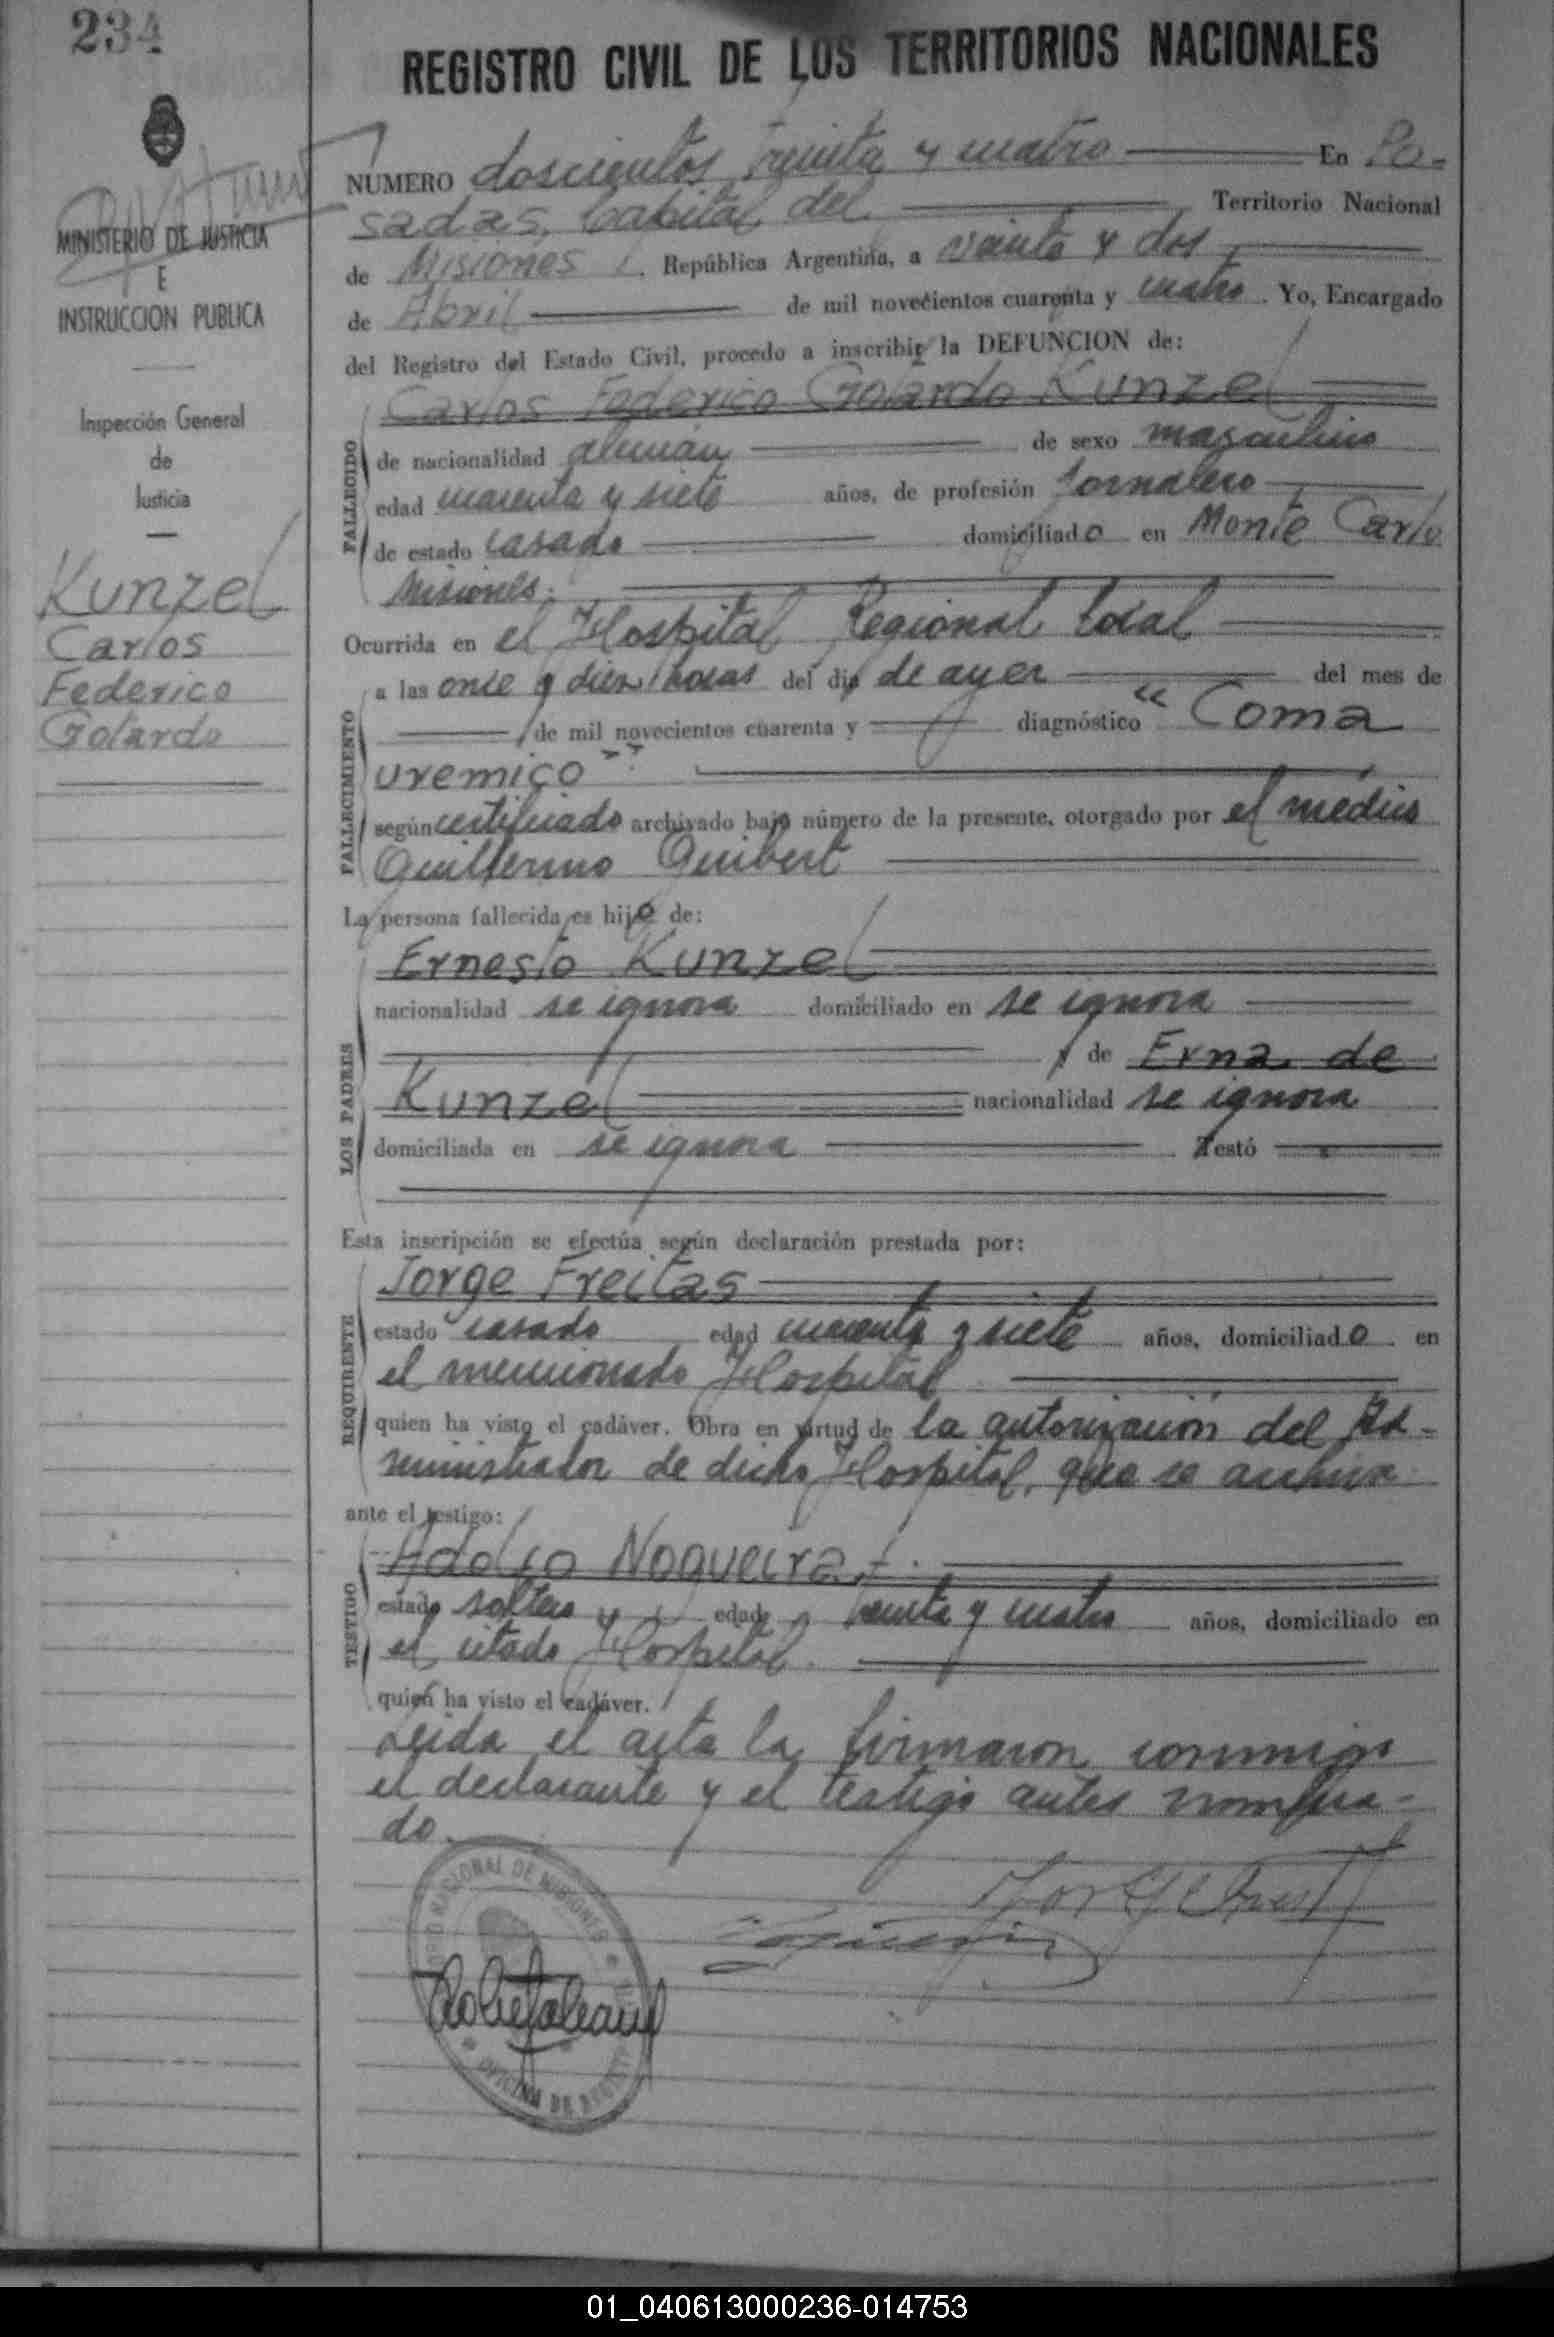 234
REGISTRO CIVIL DE LOS TERRITORIOS NACIONALES
MINISTERIO DE JUSTICIA
E
INSTRUCCION PUBLICA
Inspección General
de
Justicia
Kunzel
Carlos
Federico
Gotardo
NUMERO doscientos treinta y cuatro En Po-
sadas, Capital del Territorio Nacional
de Misiones, República Argentina, a veinte y dos
de Abril de mil novecientos cuarenta y cuatro. Yo, Encargado
del Registro del Estado Civil, procedo a inscribir la DEFUNCION de:
FALLECIDO
Carlos Federico Gotardo Kunzel
de nacionalidad alemán de sexo masculino
edad cuarenta y siete años, de profesión jornalero
de estado casado domiciliado en Monte Carlo
Misiones.
Ocurrida en el Hospital Regional local
FALLECIMIENTO
a las once y diez horas del día de ayer del mes de
de mil novecientos cuarenta y diagnóstico "Coma
uremico".
según certificado archivado bajo número de la presente, otorgado por el médico
Guillermo Guibert
La persona fallecida es hijo de:
LOS PADRES
Ernesto Kunzel
nacionalidad se ignora domiciliado en se ignora
y de Erna de
Kunzel nacionalidad se ignora
domiciliada en se ignora Testó
Esta inscripción se efectúa según declaración prestada por:
REQUIRENTE
Jorge Freitas
estado casado edad cuarenta y siete años, domiciliado en
el mencionado Hospital
quien ha visto el cadáver. Obra en virtud de la autorización del Ad-
ministrador de dicho Hospital, que se archiva
ante el testigo:
TESTIGO
Adolfo Nogueira.
estado soltero edad treinta y cuatro años, domiciliado en
el citado Hospital.
quien ha visto el cadáver.
Leida el acta la firmaron conmigo
el declarante y el testigo antes nombra-
do.
NACIONAL DE MISIONES
OFICINA DE
01_040613000236-014753